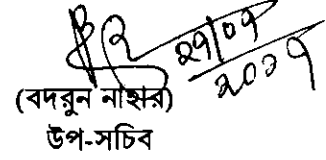 ২৭|০৭
২০২৭
(বদরুন নাহার)
উপ-সচিব